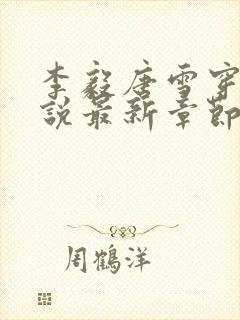 李毅唐雪穿
說最新章節
周鶴洋